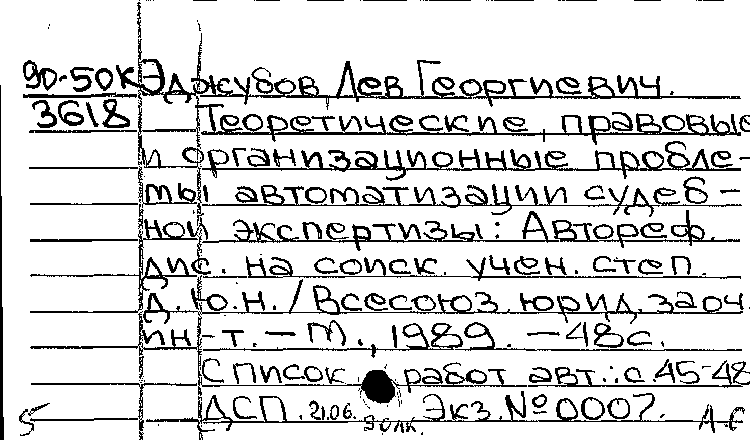 90-50К Эджубов, Лев Георгиевич.
3618 Теоретические, правовые
и организационные пробле-
мы автоматизации судеб-
ной экспертизы: Автореф.
дис. на соиск. учен. степ.
д.ю.н. / Всесоюз. юрид. заоч.
ин-т. - М., 1989. - 48 с.
Список работ авт.: с. 45-48
ДСП. 21.06. Экз. № 0007.
5 90лк. А-6